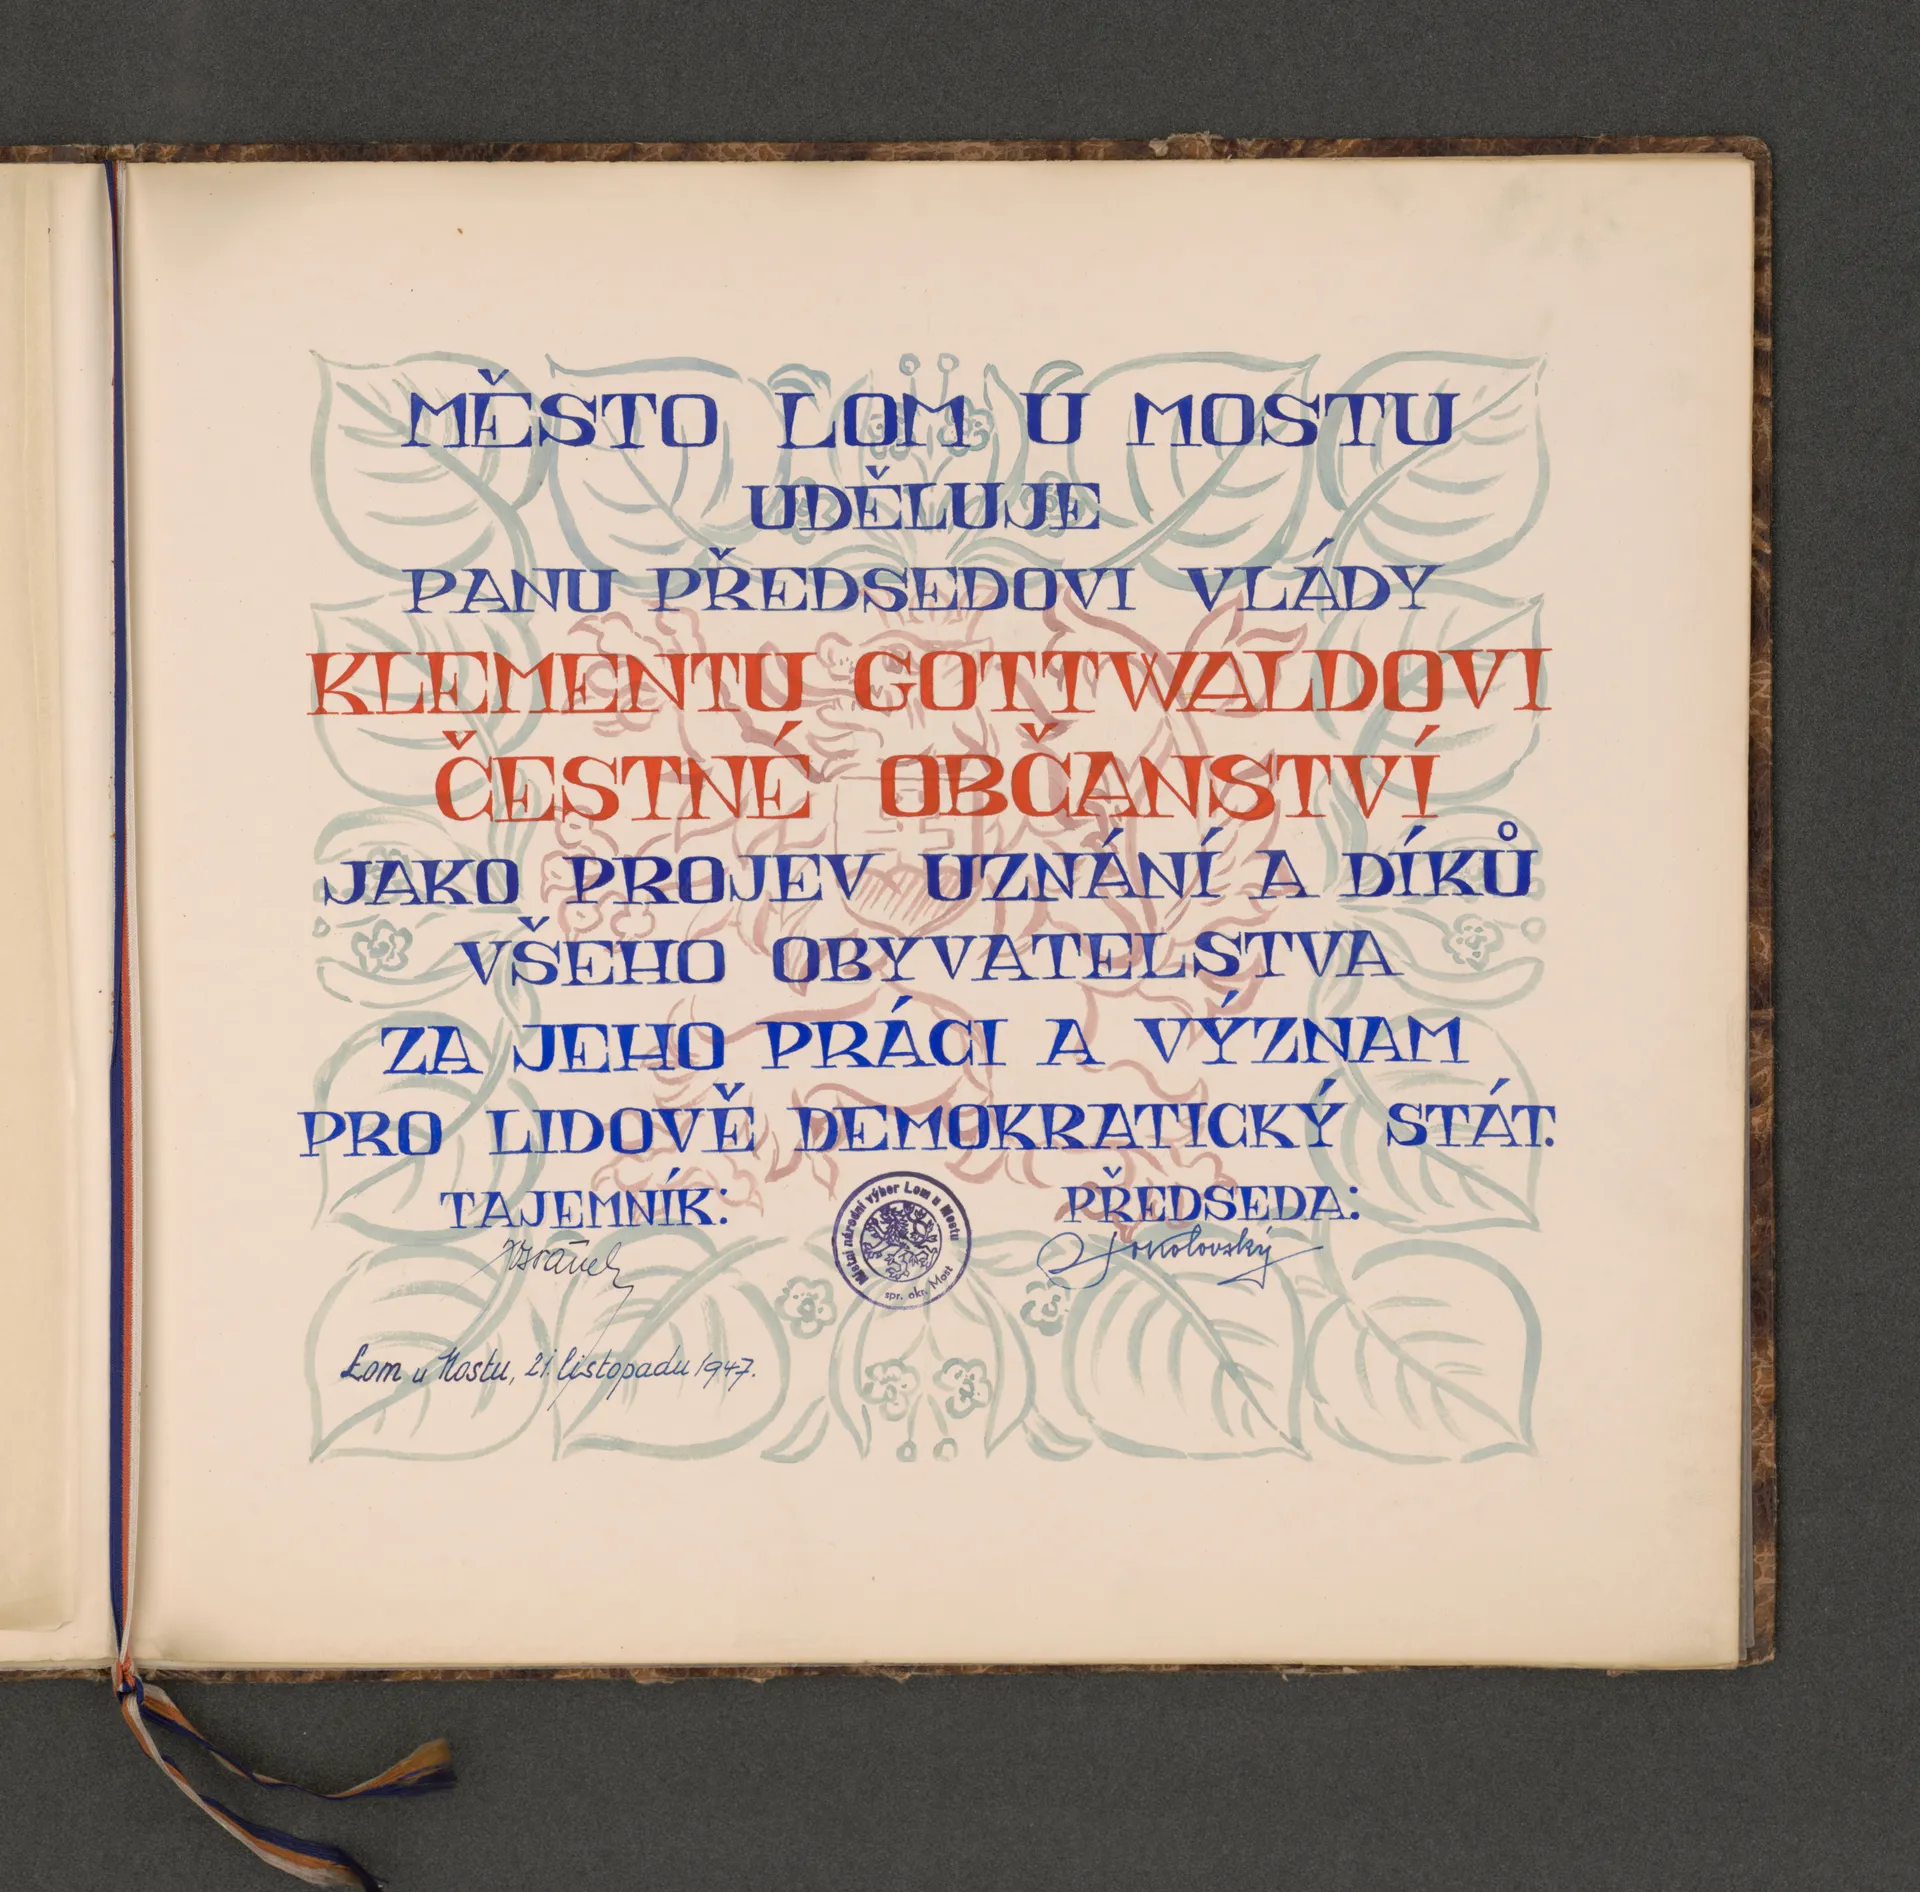 MĚSTO LOM U MOSTU
UDĚLUJE
PANU PŘEDSEDOVI VLÁDY
KLEMENTU GOTTWALDOVI
ČESTNÉ OBČANSTVÍ
JAKO PROJEV UZNÁNÍ A DÍKŮ
VŠEHO OBYVATELSTVA
ZA JEHO PRÁCI A VÝZNAM
PRO LIDOVĚ DEMOKRATICKÝ STÁT.
TAJEMNÍK: PŘEDSEDA:
Sokolovský
Místní národní výbor Lom u Mostu
spr. okr. Most
Lom u Mostu, 21. listopadu 1947.